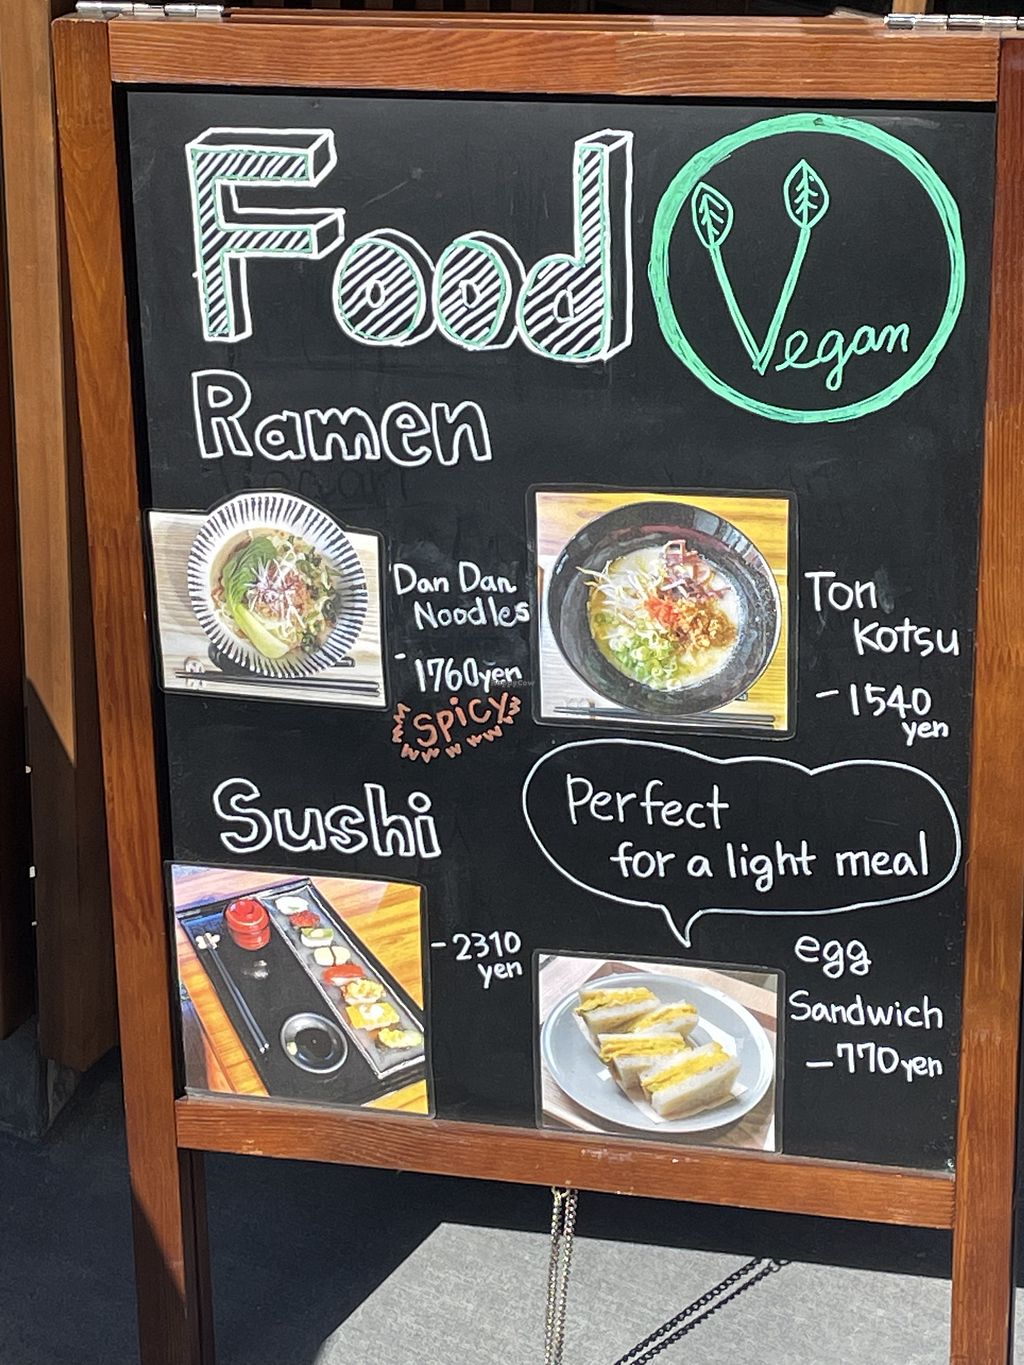 Food
Vegan
Ramen
Dan Dan
Noodles
-1760yen
SPICY
Ton
Kotsu
-1540
yen
Sushi
-2310
yen
Perfect
for a light meal
egg
Sandwich
-770yen